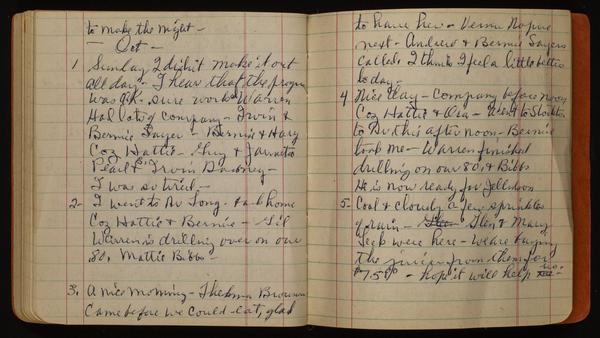 to make the night -
- Oct -
1 Sunday I didn't make it out
all day - I hear that the program
was g'k. sure work Warren
Had lots of company - Irvin &
Bernice Sayer - Bernie & Mary
Coz Hattie - Guy &
Pearl & Irvin
I was so tired -
2 - I went to Dr Long - took home
Coz Hattie & Bernie -
Warren is drilling over on our
80, Mattie Bibbs -
3. A nice morning - Thelma Brown
came before we could eat, glad
to have her - Vernie
next - Andrew & Bernice Sayers
called I think I feel a little better
today -
4 Nice day - Company before noon
Coz Hattie & Ora - Went to Stockton
to Dr this after noon - Bernie
took me - Warren finished
drilling on our 80, & Bibbs
He is now ready for
5 - Cool & cloudy a few sprinkles
of rain - Glen & Mary
were here - We are buying
the from them for
$7.50 - hope it will help me.